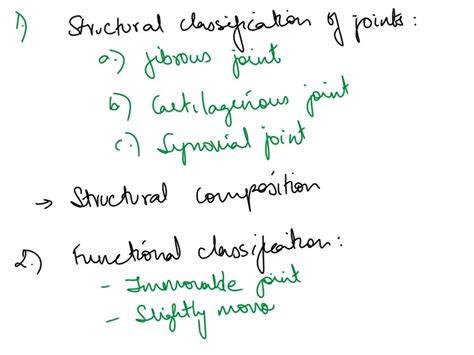 1) Structural classification of joints:
a.) fibrous joint
b) Cartilagenous joint
c.) Synovial joint
→ Structural composition
2.) Functional classification:
- Immovable joint
- Slightly mova